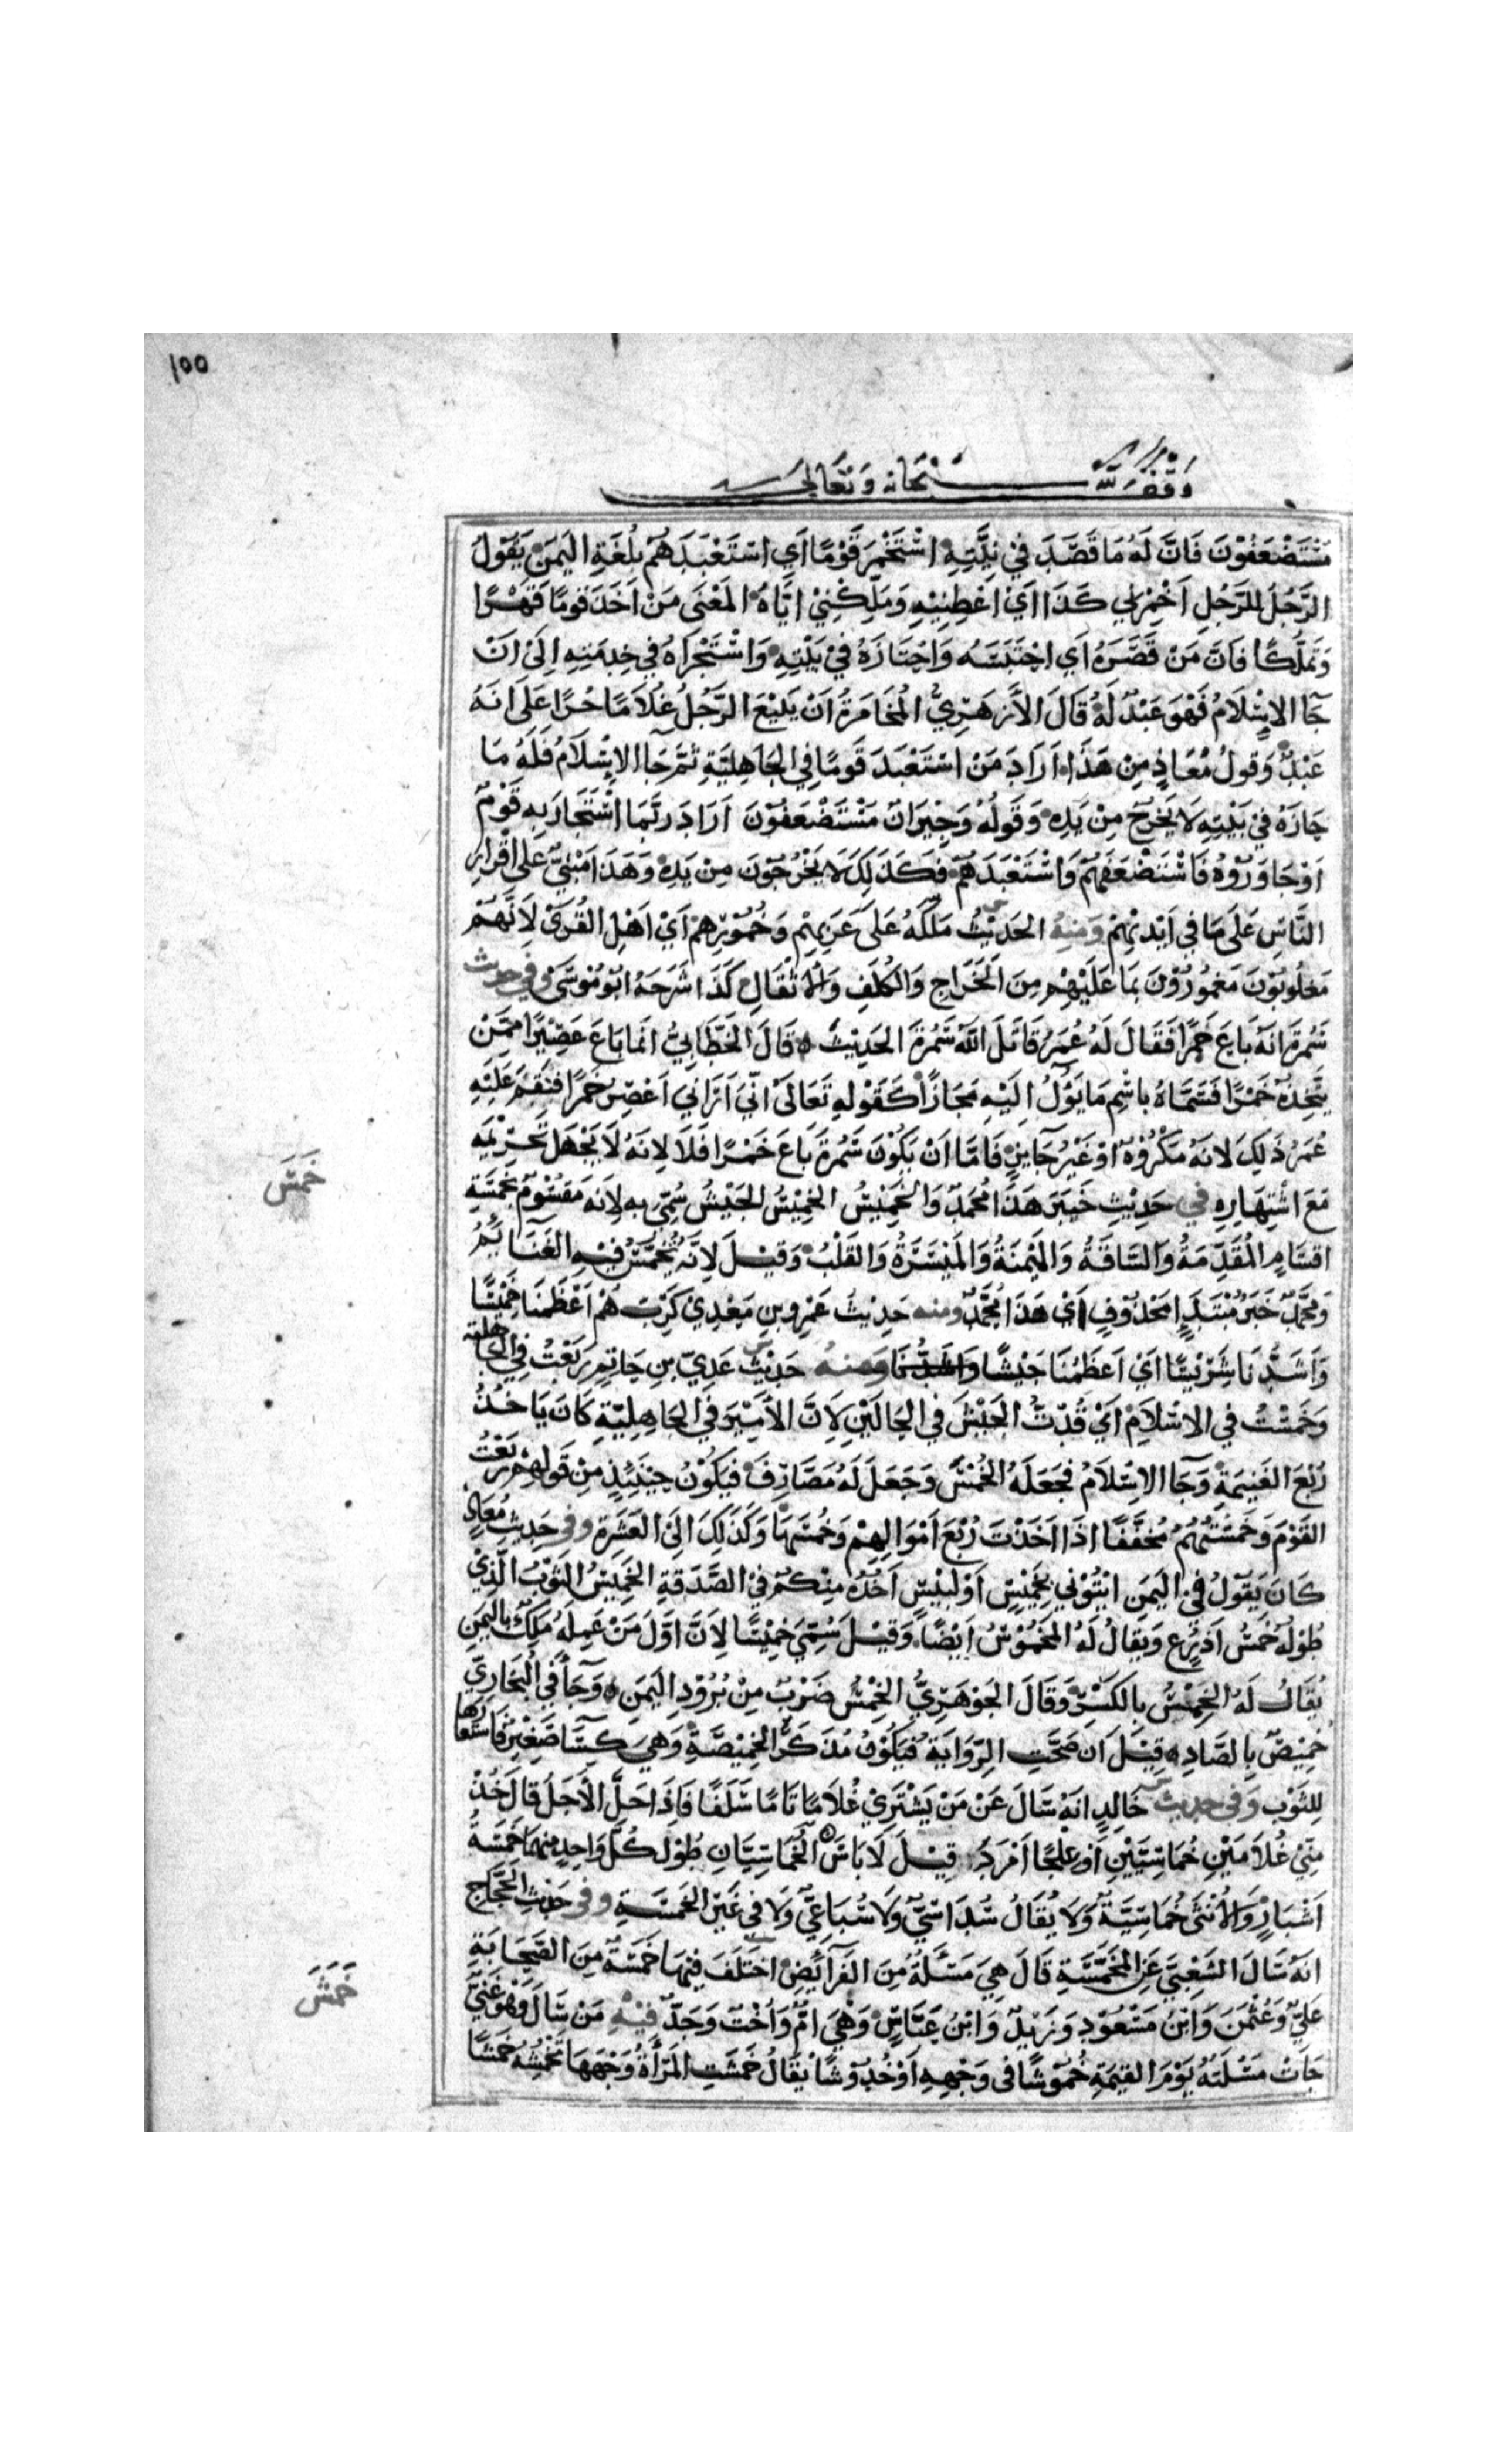 ١٥٥
وقف لله سبحانه وتعالى
مُسْتَضْعَفُوْنَ فَاِنَّ لَهُ مَا قَصَّرَ فِيْ بَيْتِهِ اسْتَخْمَرَ قَوْمًا اَي اسْتَعْبَدَهُمْ بِلُغَةِ اليَمَنِ يَقُوْلُ
الرَّجُلُ للرَّجُلِ اَخْمِرْنِي كَذَا اَيْ اَعْطِنِيْهِ وَمَلِّكْنِيْ اِيَّاهُ المَعْنَى مَنْ اَخَذَ قومًا قَهْرًا
وَتَمَلُّكًا فَاِنَّ مَنْ قَصَرَهُ اَي احْتَبَسَهُ وَاحْتَازَهُ فِيْ بَيْتِهِ وَاسْتَجْرَاهُ فِي خِدمَتِهِ اِلَىْ اَنْ
جَا الاِسْلَامُ فَهْوَ عَبْدٌ لَهُ قَالَ الأَزهَرِيُّ المُخَامَرَةُ اَنْ يَبِيْعَ الرَّجُلُ غُلَامًا حُرًا عَلَى انَهُ
عَبْدٌ وَقولُ مُعَاذٍ مِنْ هَذَا اَرَادَ مَنْ اسْتَعْبَدَ قَومًا فِي الجَاهِلِيَّةِ ثُمَّ جَا الاِسْلَامُ فَلَهُ مَا
حَازَهُ فِي بَيْتِهِ لَا يَخرُجُ مِنْ يَدِهِ وَقَولُهُ وَجِيْرَانٌ مُسْتَضْعَفُوْنَ اَرَادَ رُبَّمَا اسْتَجَارَ بِهِ قَوْمٌ
اَوْ جَاوَرُوْهُ فَاسْتَضْعَفَهُمْ وَاسْتَعْبَدَهُمْ فَكَذَلِكَ لَا يَخْرُجُوْنَ مِنْ يَدِهِ وَهَذَا مَبْنِيٌّ عَلَى اقْرَارِ
النَّاسِ عَلَى مَا فِي اَيْدِيْهِمْ وَمِنهُ الحَدِيْثُ مَلَّكَهُ عَلَى عَرَبِهِم وَخُمُوْرِهِمْ اَيْ اَهْلِ القُرَى لِاَنَّهُمْ
مَغْلُوبُوْنَ مَغمُورُوْنَ بِمَا عَلَيْهِمْ مِنَ الْخَرَاجِ وَالْكُلَفِ وَالْاَثْقَالِ كَذَا شَرَحَهُ ابُوْ مُوْسَى وفي حديث
سَمُرَةَ اَنَهُ بَاعَ خَمرًا فَقَالَ لَهُ عُمَرُ قَاتَلَ اللّهُ سَمُرَةَ الحَدِيْثُ قَالَ الخَطَّابِيُّ انَمَا بَاعَ عَصِيْرًا مِمَّنْ
يَتَّخِذُهُ خَمْرًا فَسَمَّاهُ باسْمِ مَا يَؤُلُ اِلَيْهِ مَجَازًا كَقَوْلِهِ تَعَالَى اِنِّيْ اَرَانِي اَعْصِرُ خَمْرًا فنَقَمَ عَلَيْهِ
عُمَرُ ذَلِكَ لانَهُ مَكْرُوْهٌ اَوْ غَيْرُ جَايِزٍ فَامَّا اَنْ يَكُوْنَ سَمُرَةُ بَاعَ خَمْرًا فَلَا لِانَهُ لَا يَجْهَلُ تَحْرِيْمَهِ
مَعَ اشْتِهَارِهِ في حَدِيْثِ خَيْبَرَ هَذَا مُحَمَدٌ وَالخَمِيْسُ الخَمِيْسُ الجَيْشُ سُمِّيَ بِهِ لِاَنَهُ مَقسُوْمٌ بِخَمْسَةِ
خَمَسَ
اَقسَامٍ الْمُقَدِّمَةُ وَالسَّاقَةُ وَالمَيْمَنَةُ وَالمَيْسَرَةُ وَالقَلْبُ وَقِيْلَ لِاَنَّهُ تُخَمَّسُ فِيْهِ الغَنَايِمُ
وَمحَمَّدٌ خَبَرُ مُبْتَدَاٍ مَحْذُوْفٍ اَيْ هَذَا مُحَمَّدٌ ومنه حَدِيْثُ عَمْرِو بنِ مَعْدِيْ كَرِبَ هُمْ اَعْظَمُنَا خَمِيْسًا
وَاَشَدُّنَا شَرِيْسًا اَيْ اَعظَمُنَا جَيْشًا وَاَشَدُّنَا وَمنهُ حَدِيْثُ عَدِيّ بنِ حَاتِمٍ رَبَعْتُ فِي الجَاهلية
وَخَمَسْتُ فِي الاِسْلَامِ اَيْ قُدْتُ الْجَيْشَ فِي الحَالَيْنِ لِاَنَّ الأَمِيْرَ فِي الجَاهِلِيَّةِ كَانَ يَاخُذُ
رُبْعَ الغَنِيمَةِ وَجَا الاِسْلَامُ فَجَعَلَهُ الْخُمْسَ وَجَعَلَ لَهُ مَصَارِفَ فيَكُوْنُ حِيْنَئِذٍ مِنْ قَولِهِمْ رَبَعْتُ
القَوْمَ وَخَمَسْتُهُمْ مُخَفَّفًا اذَا اَخَذْتَ رُبْعَ اَمْوَالِهِمْ وَخُمْسَهَا وَكَذَلِكَ اِلَى العَشَرَةِ وفي حَدِيثِ مُعَاذٍ
كَانَ يَقُوْلُ فِيْ اليَمَنِ ائْتُوْنِي بِخَمِيْسٍ اَوْ لَبِيْسٍ آخُذُهُ مِنْكُمْ فِيْ الصَّدَقَةِ الخَمِيْسُ الثَوْبُ الَّذِيْ
طُوْلُهُ خَمْسُ اَذرُعٍ وَيقَالُ لَهُ المَخمُوْسُ اَيْضًا وَقِيْلَ سُمِّيَ خَمِيْسًا لِاَنَّ اَوَّلَ مَنْ عَمِلَهُ مَلِكٌ باليَمَنِ
يُقَالُ لَهُ الخِمْسُ بِالكَسْرِ وَقَالَ الجَوْهَرِيُّ الخِمْسُ ضَرْبٌ مِنْ بُرُوْدِ اليَمَنِ وَجَا في البُخَارِيِّ
خَمِيْصٌ بِالصَّادِ قِيْلَ اِن صَحَّتِ الرِّوَايَةُ فيَكُوْنُ مُذَكَّرَ الخَمِيْصَةِ وَهِيَ كِسَا صَغِيْرٌ فَاسْتَعَارَهَا
لِلثَوْبِ وفي حديث خَالِدٍ انَهُ سَالَ عَنْ مَنْ يَشْتَرِيْ غُلَامًا تَامًا سَلَفًا فَاِذَا حَلَّ الأَجَلُ قالَ خُذْ
مِنِّيْ غُلَامَيْنِ خُمَاسِيَّيْنِ اَو عِلْجًا اَمْرَدَ قِيْلَ لَا بَاسَ الخُمَاسِيَّانِ طُوْلُ كُلِّ وَاحِدٍ مِنهُمَا خَمسَةُ
اَشبَارٍ وَالاُنْثَى خُمَاسِيَّةٌ وَلَا يُقَالُ سُدَاسِيٌّ وَلَا سُبَاعِيٌّ وَلَا فِي غَيْرِ الخَمْسَةِ وفي حَدِيْثِ الحَجَّاجِ
انَهُ سَالَ الشَعْبِيَّ عَنِ المُخَمَّسَةِ قَالَ هِيَ مَسْئَلَةٌ مِنَ الفَرَايِضِ اخْتَلَفَ فِيْهَا خَمْسَةٌ مِنَ الصَّحَابَةِ
عَلِيٌّ وَعُثْمٰنَ وَابْنُ مَسْعُوْدٍ وَزَيْدٌ وَابْنُ عَبَّاسٍ وَهْيَ امٌّ وَاُخْتٌ وَجَدٌّ فِيْهِ مَنْ سَالَ وَهْوَ غَنِيٌّ
خَمَشَ
جَاتْ مَسْئَلَتُهُ يَوْمَ القِيٰمَةِ خُمُوْشًا فِي وَجْهِهِ اَوْ خُدُوْشًا يُقَالُ خَمَشَتِ المَرْأَةُ وَجْهَهَا تَخْمِشُهُ خَمْشًا